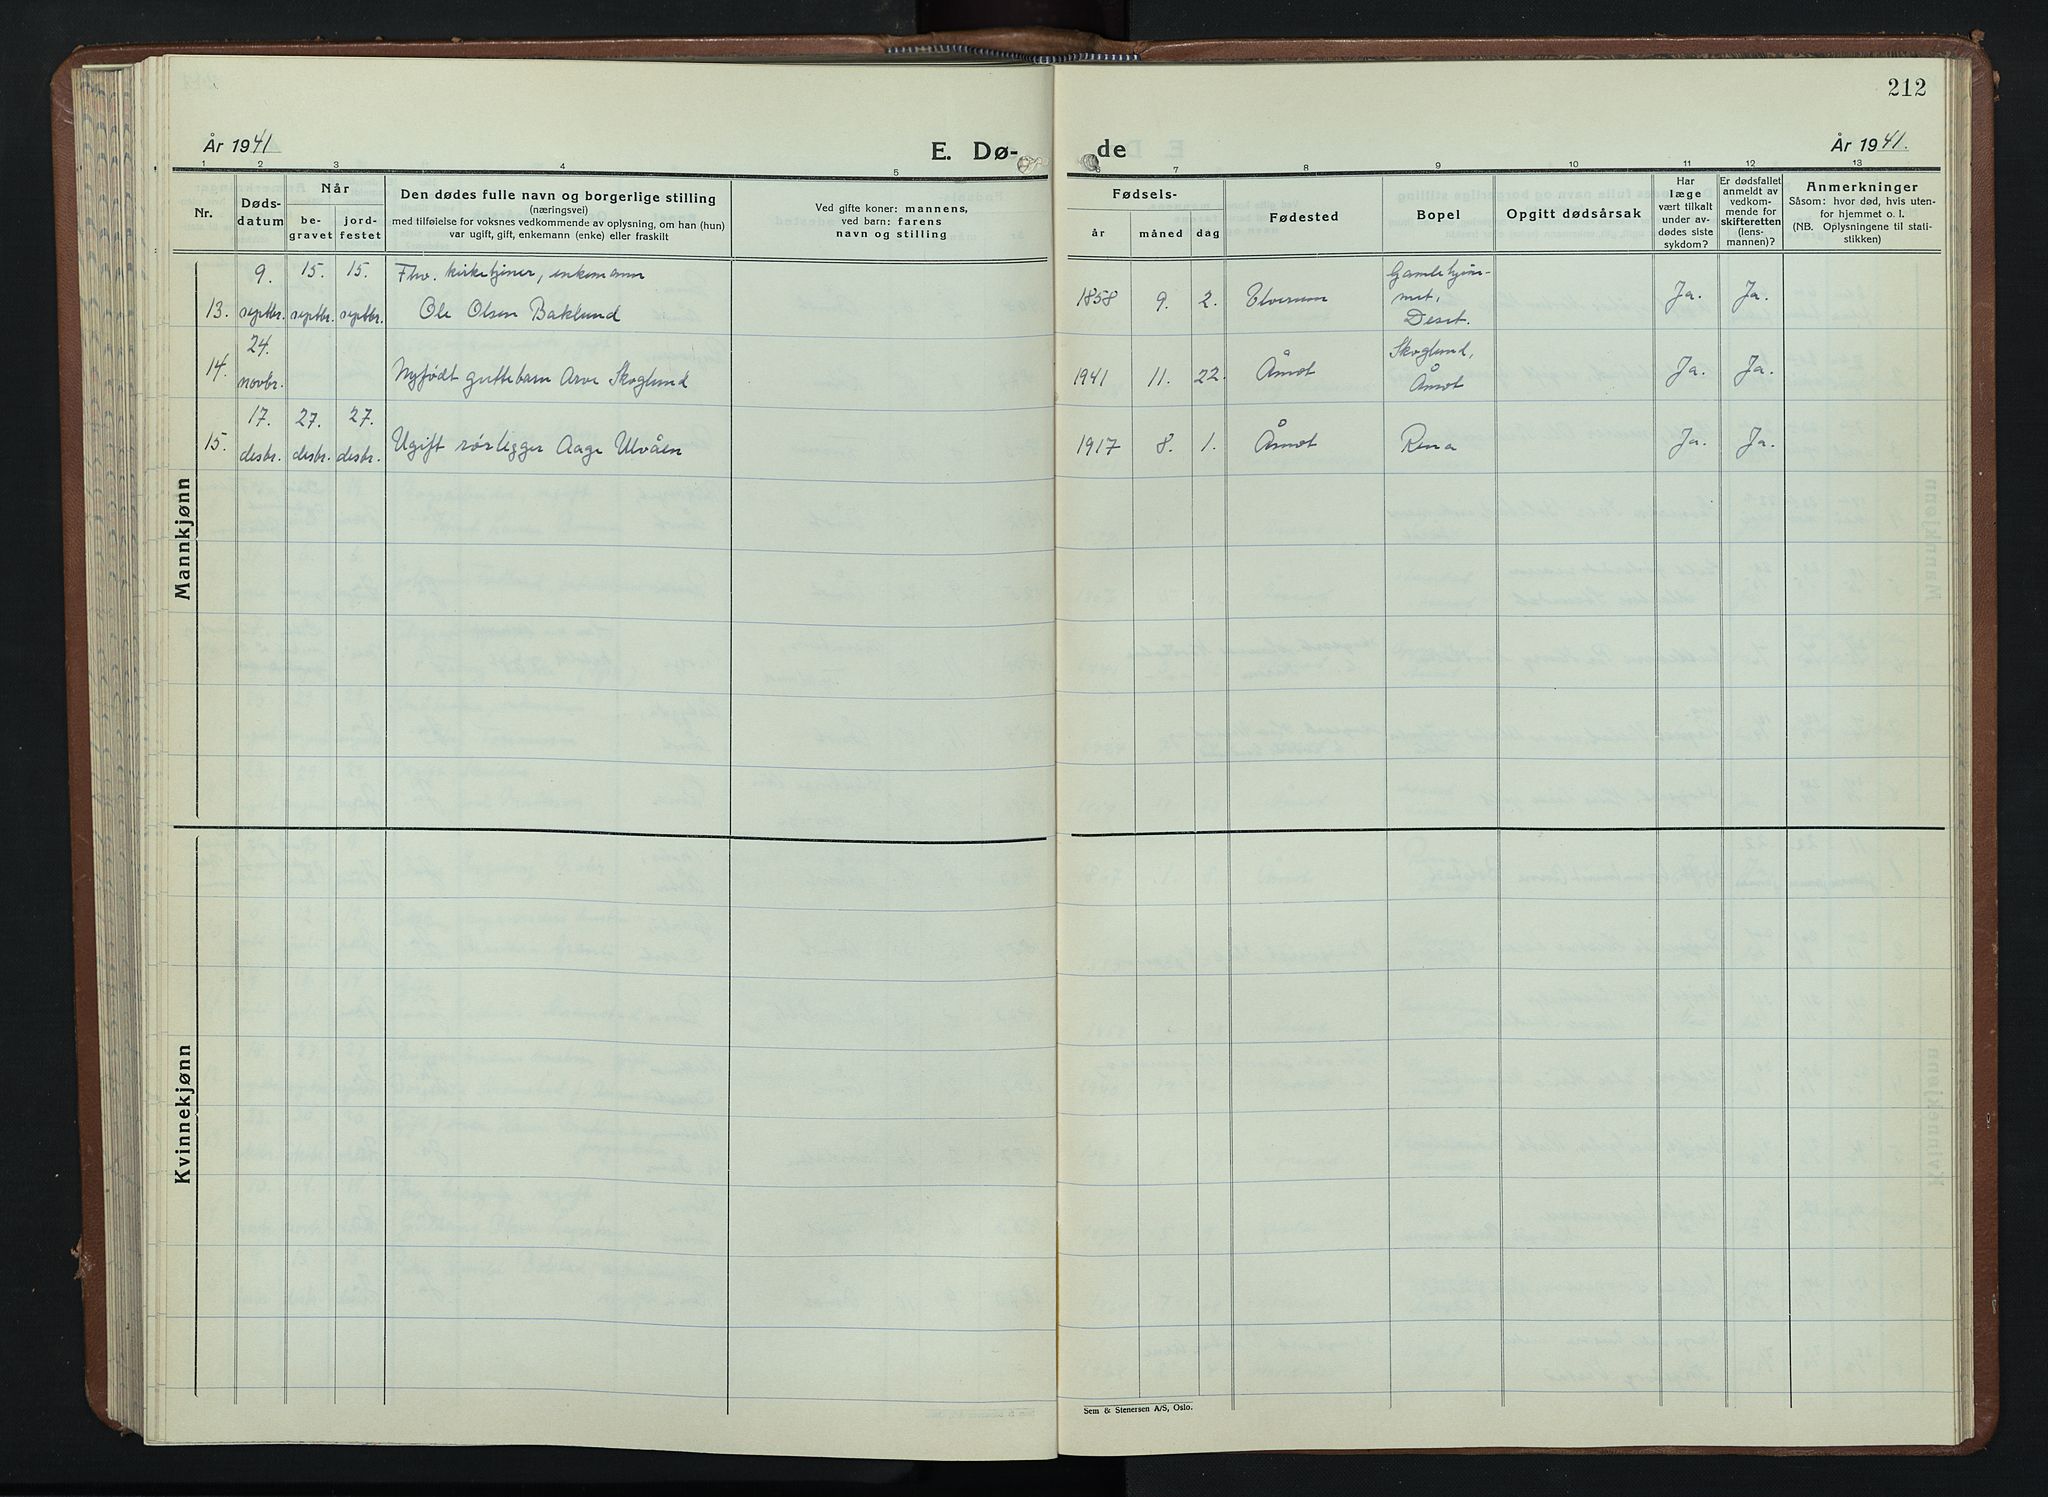 212
År 1941
E. Dø-
de
År 1941.
1 2 3 4 5 6 7 8 9 10 11 12 13
Nr.
Døds-
datum
Når
be-
gravet
jord-
festet
Den dødes fulle navn og borgerlige stilling
(næringsvei)
med tilføielse for voksnes vedkommende av oplysning, om han (hun)
var ugift, gift, enkemann (enke) eller fraskilt
Ved gifte koner: mannens,
ved barn: farens
navn og stilling
Fødsels-
år
måned
dag
Fødested
Bopel
Opgitt dødsårsak
Har
læge
vært tilkalt
under av-
dødes siste
sykdom?
Er dødsfallet
anmeldt av
vedkom-
mende for
skifteretten
(lens-
mannen)?
Anmerkninger
Såsom: hvor død, hvis uten-
for hjemmet o. l.
(NB. Oplysningene til stati-
stikken)
Mannkjønn
9. 15. 15. Fhv. kirketjener, enkemann Gamlehjem-
13. septbr. septbr. septbr. Ole Olsen Baklund 1858 9. 2. Elverum met, Ja. Ja.
Deset.
24. Skoglund,
14. novbr. Nyfødt guttebarn Arve Skoglund 1941 11. 22. Åmot Åmot Ja. Ja.
17. 27. 27.
15. desbr. desbr. desbr. Ugift rørlegger Aage Ulvåen 1917 8. 1. Åmot Rena Ja. Ja.
Kvinnekjønn
Sem & Stenersen A/S, Oslo.